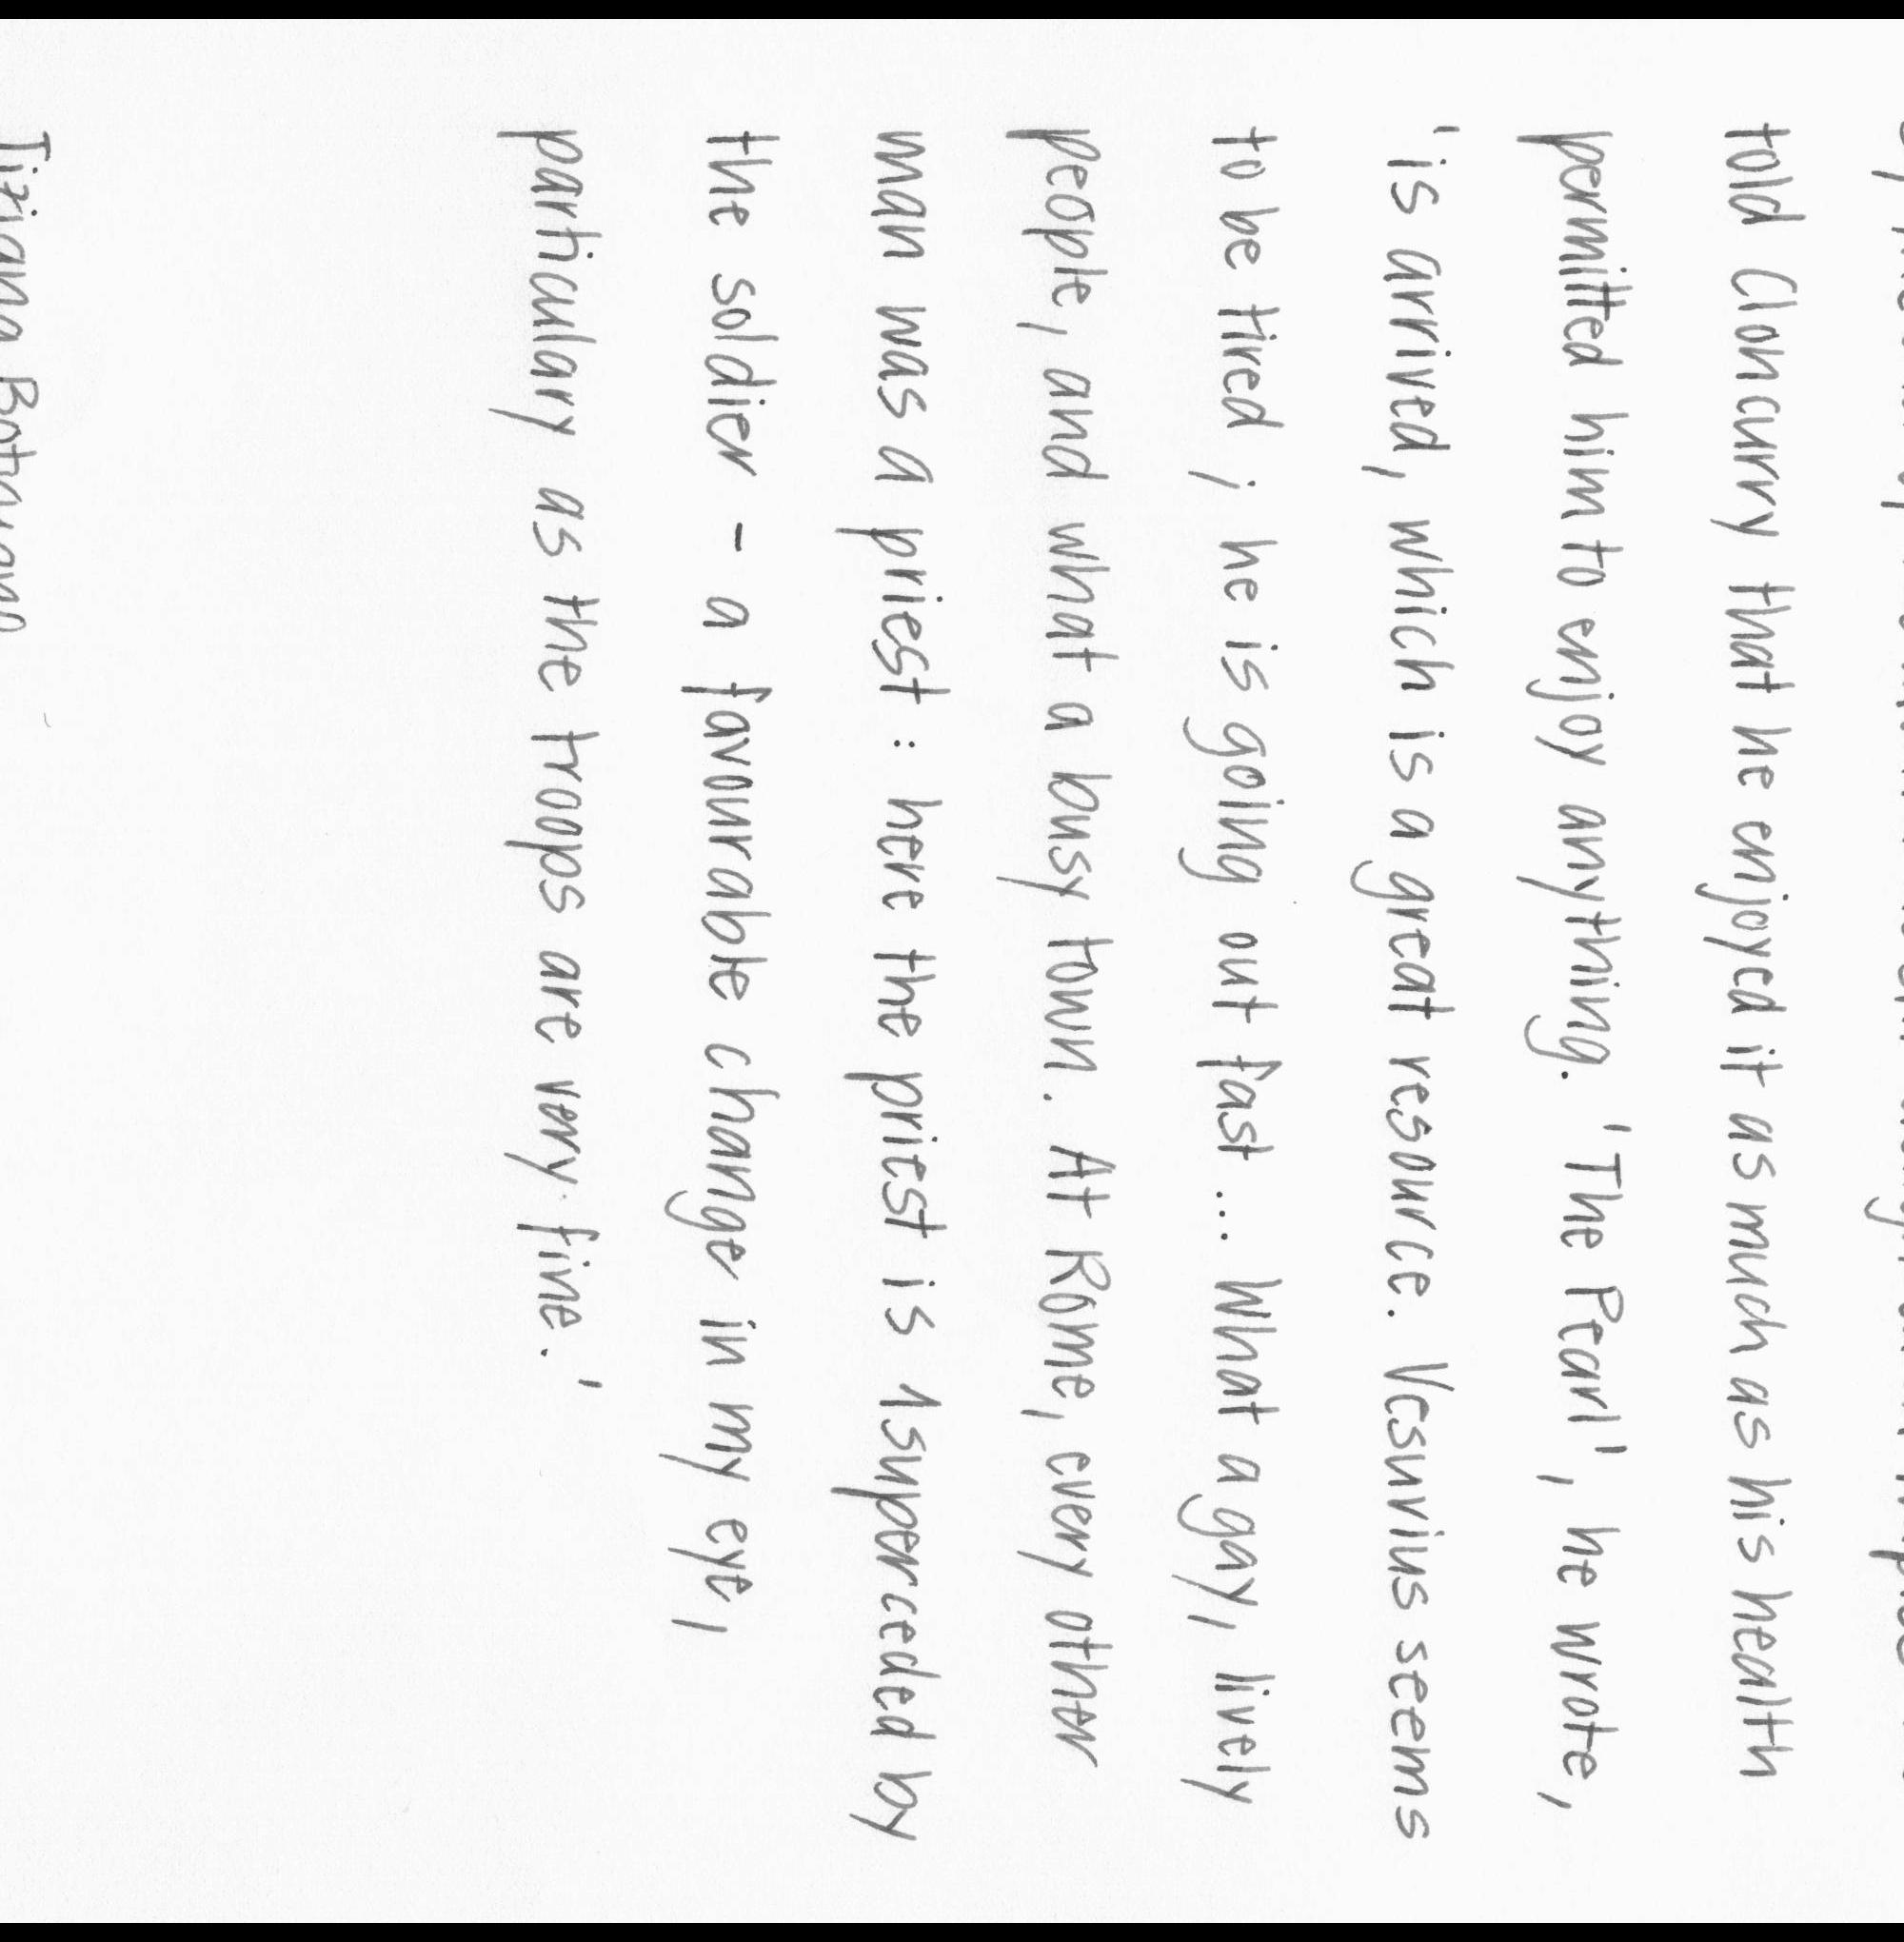 told Cloncurry that he enjoyed it as much as his health
permitted him to enjoy anything. 'The Pearl', he wrote,
'is arrived, which is a great resource. Vesuvius seems
to be tired; he is going out fast... What a gay, lively
people, and what a busy town. At Rome, every other
man was a priest: here the priest is 1superceded by
the soldier - a favourable change in my eye,
particulary as the troops are very fine.'